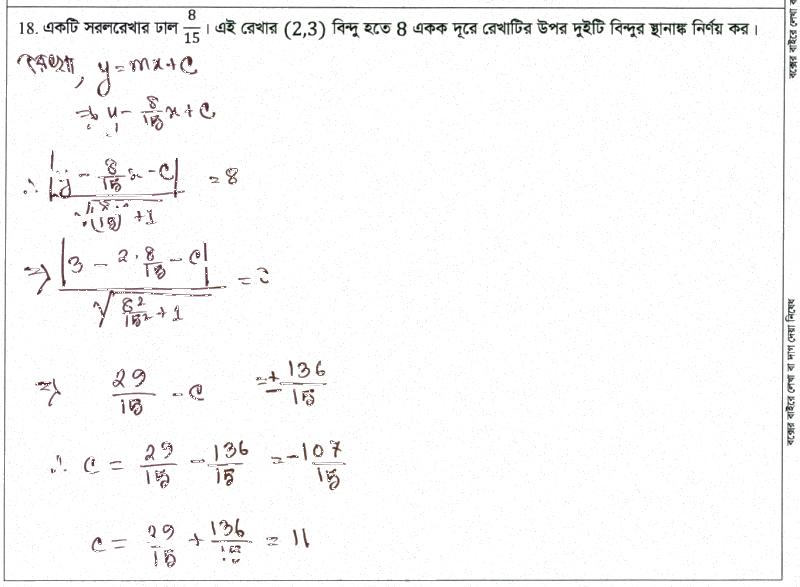 18. একটি সরলরেখার ঢাল 8/15। এই রেখার (2,3) বিন্দু হতে 8 একক দূরে রেখাটির উপর দুইটি বিন্দুর স্থানাঙ্ক নির্ণয় কর।
রেখা, y = mx + c
⇒ y - 8/15 x + c
∴ |y - 8/15 x - c| / √((8/15)² + 1) = 8
⇒ |3 - 2·8/15 - c| / √(8²/15² + 1) = 8
⇒ 29/15 - c = ± 136/15
∴ c = 29/15 - 136/15 = -107/15
c = 29/15 + 136/15 = 11
বক্সের বাইরে লেখা বা দাগ দেয়া নিষেধ